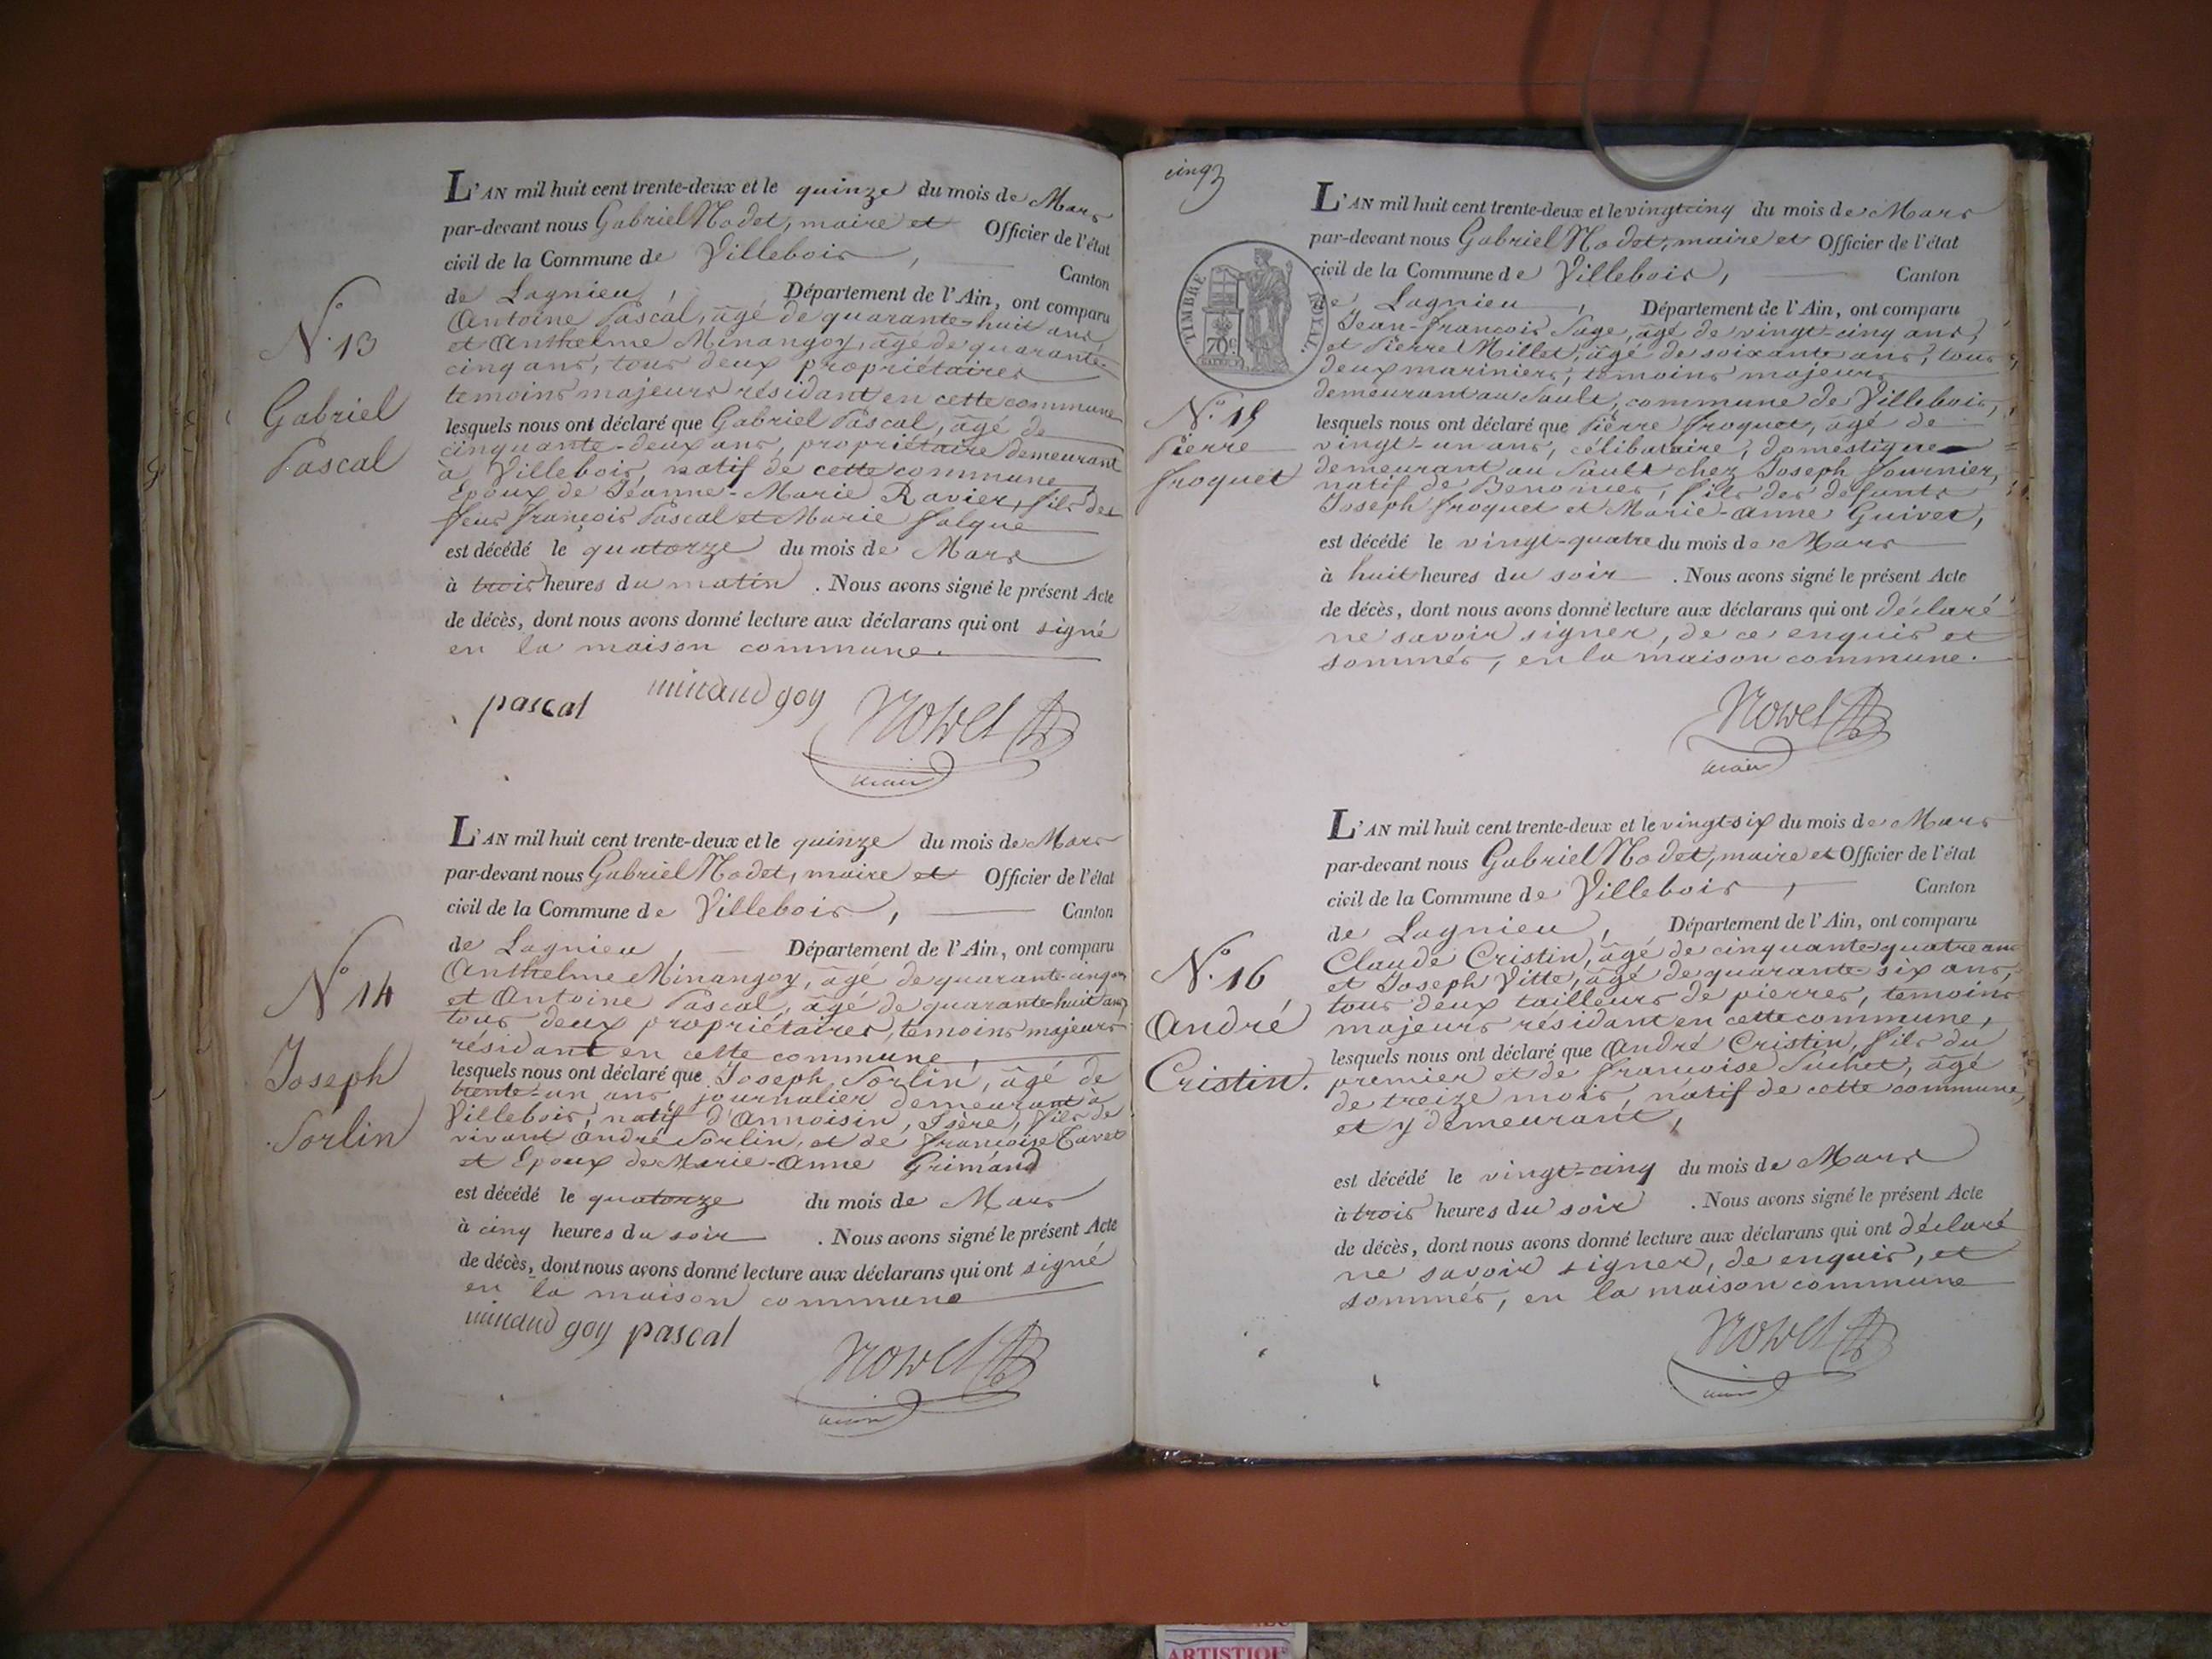 L'AN mil huit cent trente-deux et le quinze du mois de Mars
par-devant nous Gabriel Nodet, maire et Officier de l'état
civil de la Commune de Villebois, Canton
de Lagnieu, Département de l'Ain, ont comparu
Antoine Pascal, âgé de quarante-huit ans,
et Anthelme Minangoy, âgé de quarante-
cinq ans, tous deux propriétaires
temoins majeurs résidant en cette commune
lesquels nous ont déclaré que Gabriel Pascal, âgé de
cinquante-deux ans, propriétaire demeurant
à Villebois, natif de cette commune,
Epoux de Jéanne-Marie Ravier, fils des
feus françois Pascal et Marie falque
est décédé le quatorze du mois de Mars
à trois heures du matin. Nous avons signé le présent Acte
de décès, dont nous avons donné lecture aux déclarans qui ont signé
en la maison commune.
N.° 13
Gabriel
Pascal
pascal minand goy
maire
L'AN mil huit cent trente-deux et le quinze du mois de Mars
par-devant nous Gabriel Nodet, maire et Officier de l'état
civil de la Commune de Villebois, Canton
de Lagnieu, Département de l'Ain, ont comparu
Anthelme Minangoy, âgé de quarante-cinq ans
et Antoine Pascal, âgé de quarante-huit ans,
tous deux propriétaires, temoins majeurs
résidant en cette commune,
lesquels nous ont déclaré que Joseph Sorlin, âgé de
trente-un ans, journalier demeurant à
Villebois, natif d'Annoisin, Isère, fils de
vivant André Sorlin, et de françoise Tavet
et Epoux de Marie-Anne Grimand
est décédé le quatorze du mois de Mars
à cinq heures du soir. Nous avons signé le présent Acte
de décès, dont nous avons donné lecture aux déclarans qui ont signé
en la maison commune
N.° 14
Joseph
Sorlin
minand goy pascal
maire
cinq
TIMBRE ROYAL.
70c
L'AN mil huit cent trente-deux et le vingt cinq du mois de Mars
par-devant nous Gabriel Nodet, maire et Officier de l'état
civil de la Commune de Villebois, Canton
de Lagnieu, Département de l'Ain, ont comparu
Jean-françois Sage, âgé de vingt-cinq ans,
et Pierre Millet, âgé de soixante ans, tous
deux mariniers, temoins majeurs
demeurant au Sault, commune de Villebois,
lesquels nous ont déclaré que Pierre froquet, âgé de
vingt-un ans, célibataire, domestique
demeurant au Sault chez Joseph fournier,
natif de Benonces, fils des defunts
Joseph froquet et Marie-Anne Guivet,
est décédé le vingt-quatre du mois de Mars
à huit heures du soir. Nous avons signé le présent Acte
de décès, dont nous avons donné lecture aux déclarans qui ont déclaré
ne savoir signer, de ce enquis et
sommés, en la maison commune.
N.° 15
Pierre
froquet
maire
L'AN mil huit cent trente-deux et le vingt-six du mois de Mars
par-devant nous Gabriel Nodet, maire et Officier de l'état
civil de la Commune de Villebois, Canton
de Lagnieu, Département de l'Ain, ont comparu
Claude Cristin, âgé de cinquante-quatre ans
et Joseph Vitte, âgé de quarante-six ans,
tous deux tailleurs de pierres, temoins
majeurs résidant en cette commune,
lesquels nous ont déclaré que André Cristin, fils du
premier et de françoise Suchet, âgé
de treize mois, natif de cette commune,
et y demeurant,
est décédé le vingt-cinq du mois de Mars
à trois heures du soir. Nous avons signé le présent Acte
de décès, dont nous avons donné lecture aux déclarans qui ont déclaré
ne savoir signer, de enquis, et
sommés, en la maison commune
N.° 16
André
Cristin.
ARTISTIQU